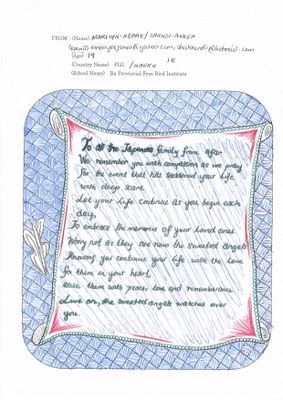 FROM : (Name) MARILYN KERRE / SHANDI AIREEN
(email) emojoysjones@yahoo.com, dicksandi@hotmail.com
(Age) 19 18
(Country Name) FIJI /NAURU
(School Name) Ba Provincial Free Bird Institute
To all the Japanese family from afar
We remember you with compassion as we pray
For the event that hits saddened your life
with deep scars.
Let your life continue as you begin each
day,
To embrace the memories of your loved ones.
Worry not as they are now the sweetest angels
Knowing you continue your life with the love
for them in your heart,
ease them with peace, love and remembrance.
Love on, the sweetest angels watches over
you.